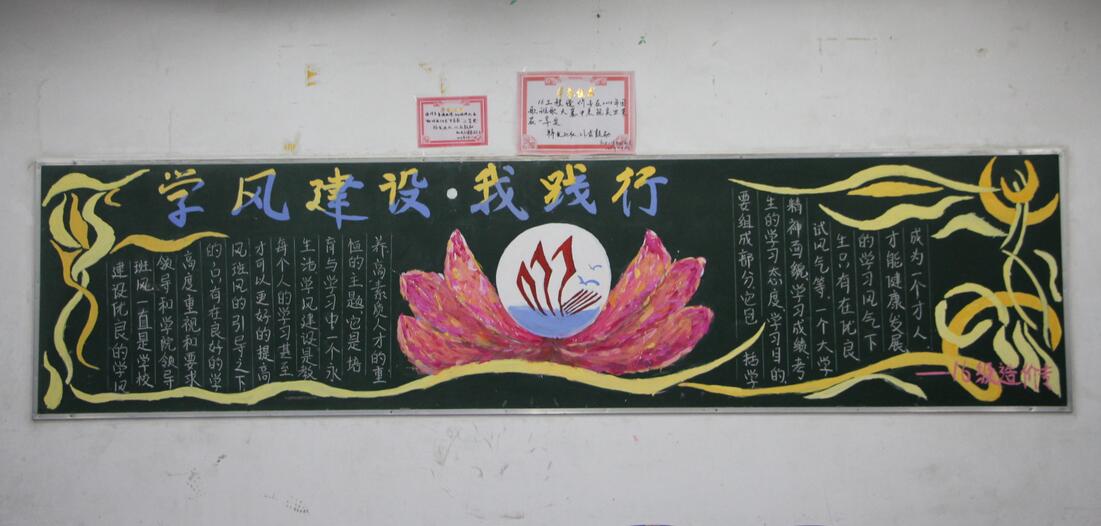 学风建设·我践行
建设优良的学风
班风一直是学校
领导和学院领导
高度重视和要求
的,只有在良好的学
风班风的引导之下
才可以更好的提高
每个人的学习甚至
生活学风建设是教
育与学习中一个永
恒的主题它是培
养高素质人才的重
要组成部分它包括学
生的学习态度、学习目的、
精神面貌学习成绩考
试风气等,一个大学
生只有在优良
的学习风气下
才能健康发展
成为一个才人
——16级造价
特发此证 以资鼓励